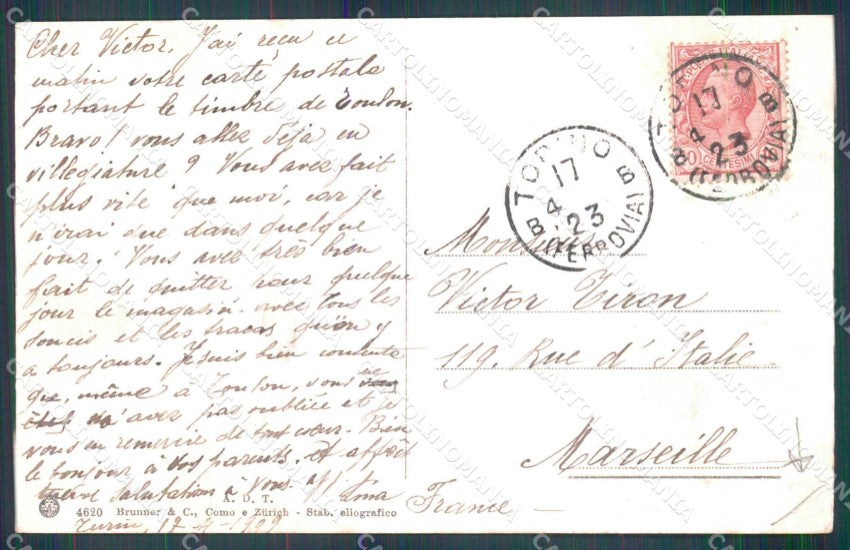 Cher Victor. J'ai reçu ce
matin votre carte postale
portant le timbre de Toulon.
Bravo! vous allez déjà en
villegiature? Vous avez fait
plus vite que moi, car je
n'irai que dans quelque
jour. Vous avez très bien
fait de quitter pour quelque
jour le magasin. avec tous les
soucis et les tracas qu'on y
a toujours. Je suis bien contente
que, même a Toulon, vous ne
m'avez pas oubliée et je
vous en remercie de tout cœur. Bien
le bonjour à vos parents. et
salutations à Vous
A. D. T.
4620 Brunner & C., Como e Zürich - Stab. eliografico
Turin, 17-4-1923
TORINO
17
4
23
B B
(FERROVIA)
TORINO
17
4
23
B B
(FERROVIA)
CENTESIMI
Monsieur
Victor Tiron
119. Rue d'Italie
Marseille
France
CARTOLINOMANIA